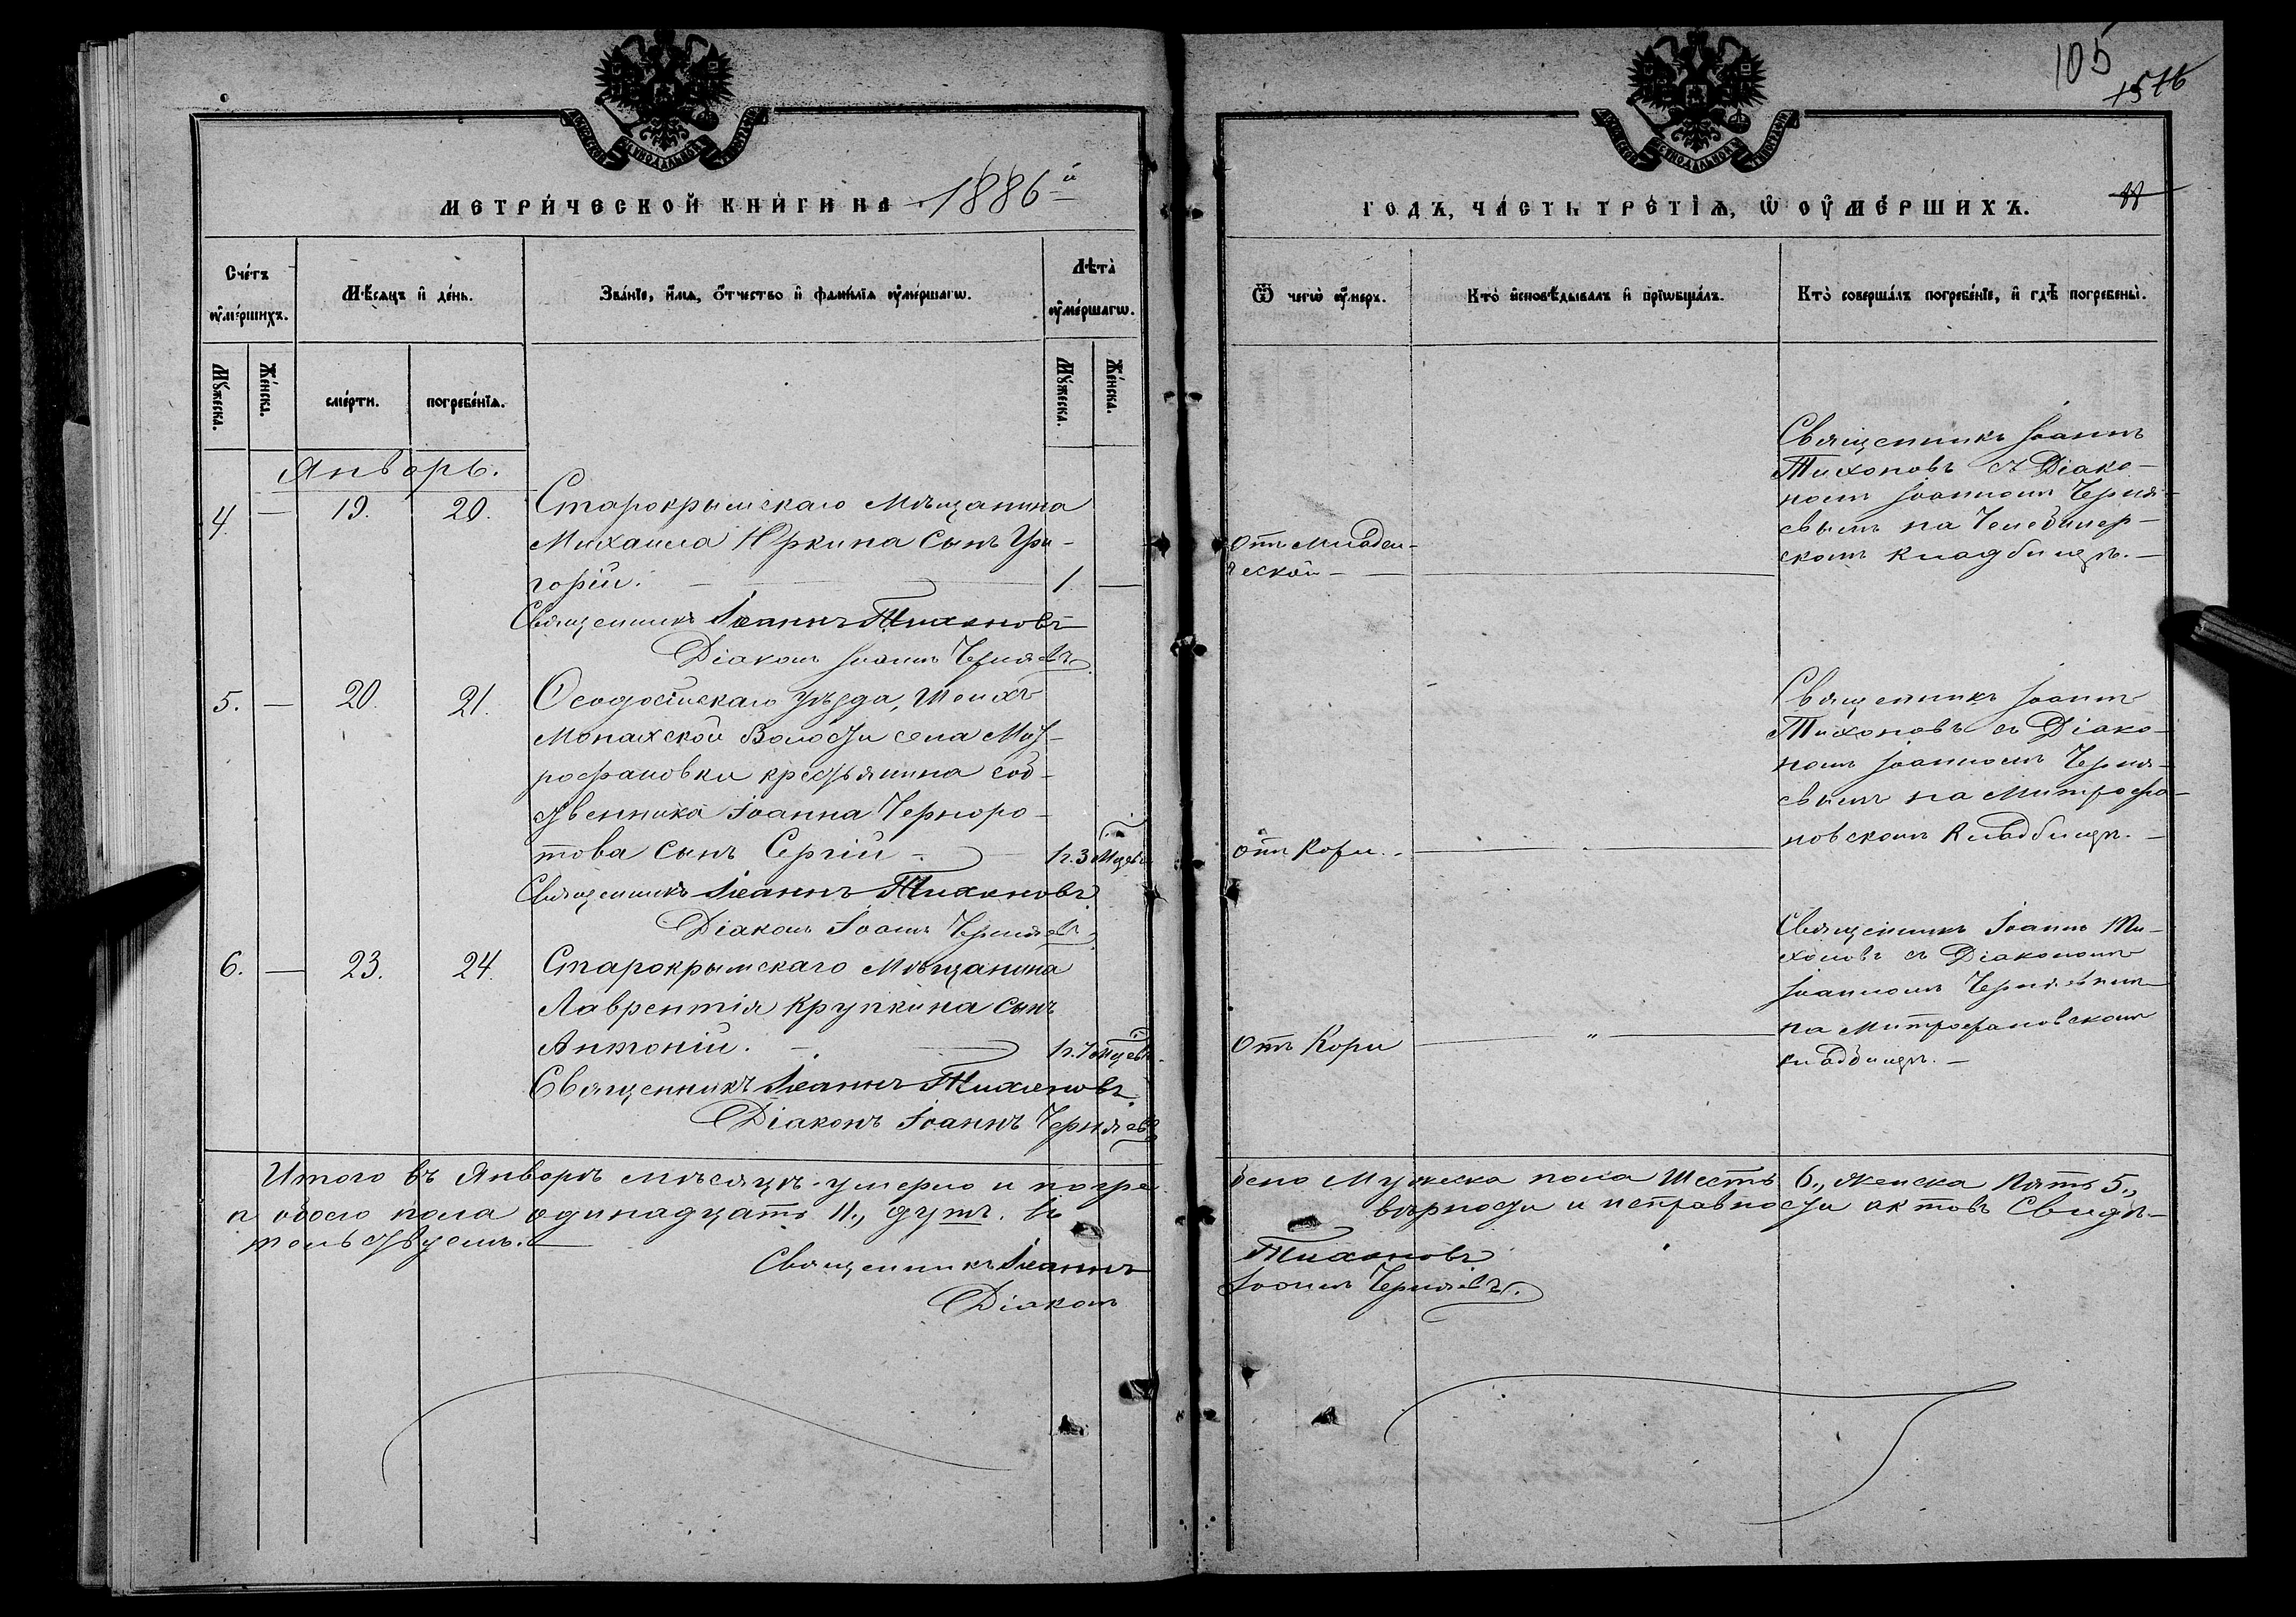 105
1516
МЕТРИ́ЧЕСКОЙ КНИ́ГИ НА 1886й
ГОДЪ, ЧА́СТЬ ТРЕ́ТІѦ, Ѡ ОУ҆МЕ́РШИХЪ.
Сче́тъ оу҆ме́ршихъ.
Мѣ́сѧцъ и҆ де́нь.
Зва́нїе, и҆́мѧ, ѻ҆́тчество и҆ фами́лїѧ оу҆ме́ршагѡ.
Лѣ́та̀ оу҆ме́ршагѡ.
Ѿ чегѡ̀ оу҆́меръ.
Кто̀ и҆сповѣ́дывалъ и҆ прїѡбща́лъ.
Кто̀ соверша́лъ погребе́нїе, и҆ гдѣ̀ погребены̀.
Мꙋ́жеска.
Же́нска.
сме́рти.
погребе́нїѧ.
Мꙋ́жеска.
Же́нска.
Январь.
4. — 19. 20.
Старокрымскаго Мѣщанина
Михаила Юркина Сынъ Гри-
горій. — 1. —
Священникъ Іоаннъ Тихоновъ
Діаконъ Іоаннъ Черняевъ
Отъ младен-
ческой —
Священникъ Іоаннъ
Тихоновъ съ Діако-
номъ Іоанномъ Черня-
евымъ на
скомъ кладбищѣ. —
5. — 20. 21.
Ѳеодосійскаго уѣзда, Шейхъ
Монахской Волости села Мит-
рофановки крестьянина соб-
ственника Іоанна Черноро-
това Сынъ Сергій — 1г. 3
Священникъ Іоаннъ Тихоновъ.
Діаконъ Іоаннъ Черняевъ
отъ Кори. —
Священникъ Іоаннъ
Тихоновъ съ Діако-
номъ Іоанномъ Черня-
евымъ на Митрофа-
новскомъ Кладбищѣ. —
6. — 23. 24.
Старокрымскаго Мѣщанина
Лаврентія Крупкина сынъ
Антоній. — 1г.
Священникъ Іоаннъ Тихоновъ.
Діаконъ Іоаннъ Черняевъ
Отъ Кори — „ —
Священникъ Іоаннъ Ти-
хоновъ съ Діакономъ
Іоанномъ Черняевымъ
на Митрофановскомъ
кладбищѣ. —
Итого въ Январѣ мѣсяцѣ умерло и погре
бено Мужеска пола Шесть 6., женска Пять 5.,
а обоего пола одинадцать 11., душъ. Въ
вѣрности и исправности актовъ Свидѣ-
тельствуемъ. —
Священникъ Іоаннъ Тихоновъ
Діаконъ Іоаннъ Черняевъ.